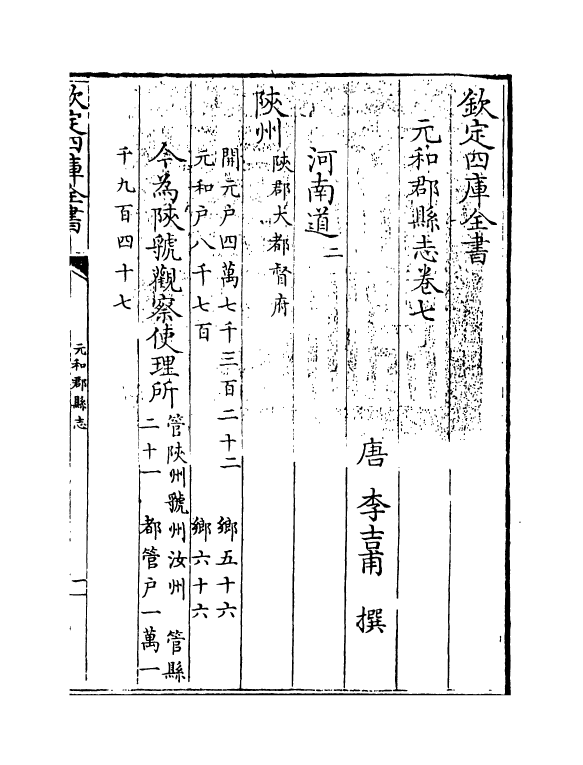 欽定四庫全書
元和郡縣志卷七
唐 李吉甫 撰
河南道二
陜州
陜郡大都督府
開元户四萬七千三百二十二 鄉五十六
元和户八千七百 鄉六十六
今為陜虢觀察使理所
管陜州虢州汝州 管縣
二十一 都管户一萬一
千九百四十七
欽定四庫全書
元和郡縣志
一